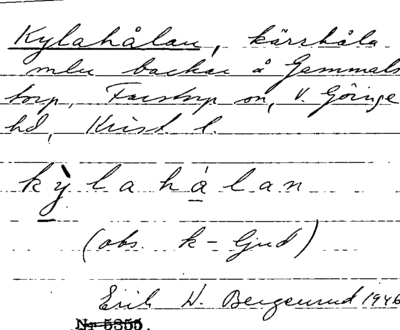 Kylahålan, kärrhåla
mlu backar å Gammals
torp, Farstorp sn, V. Göinge
hd, Krist l.
kỳlahålan
(obs. k-ljud)
Erik W. Bergenrud 1946
Nr 5355.